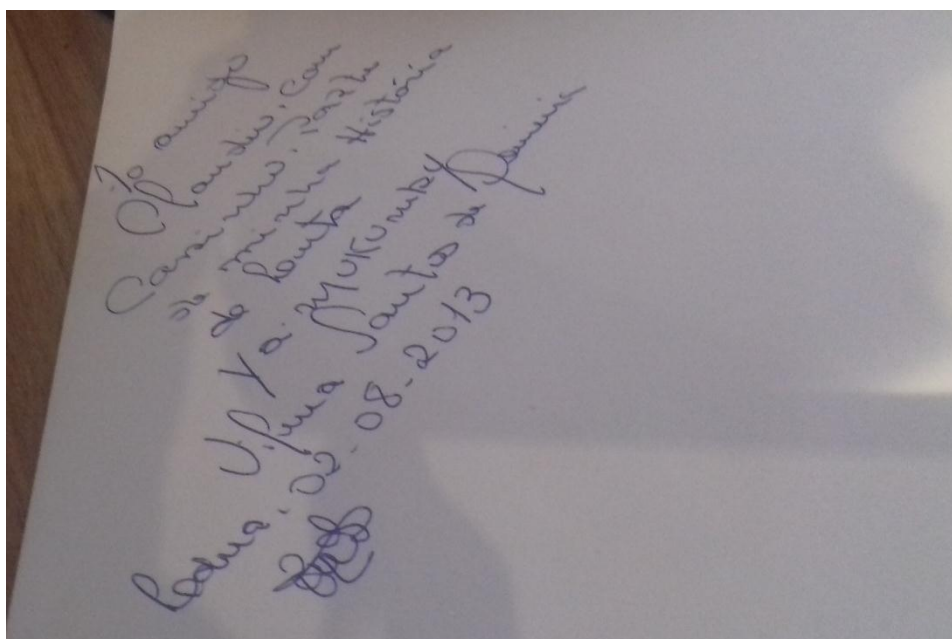 Ao amigo
Claudio, com
Carinho, Parte
da minha História
de Luta
Yá Mukumby
Vilma Santos de Oliveira
Londrina, 02-08-2013